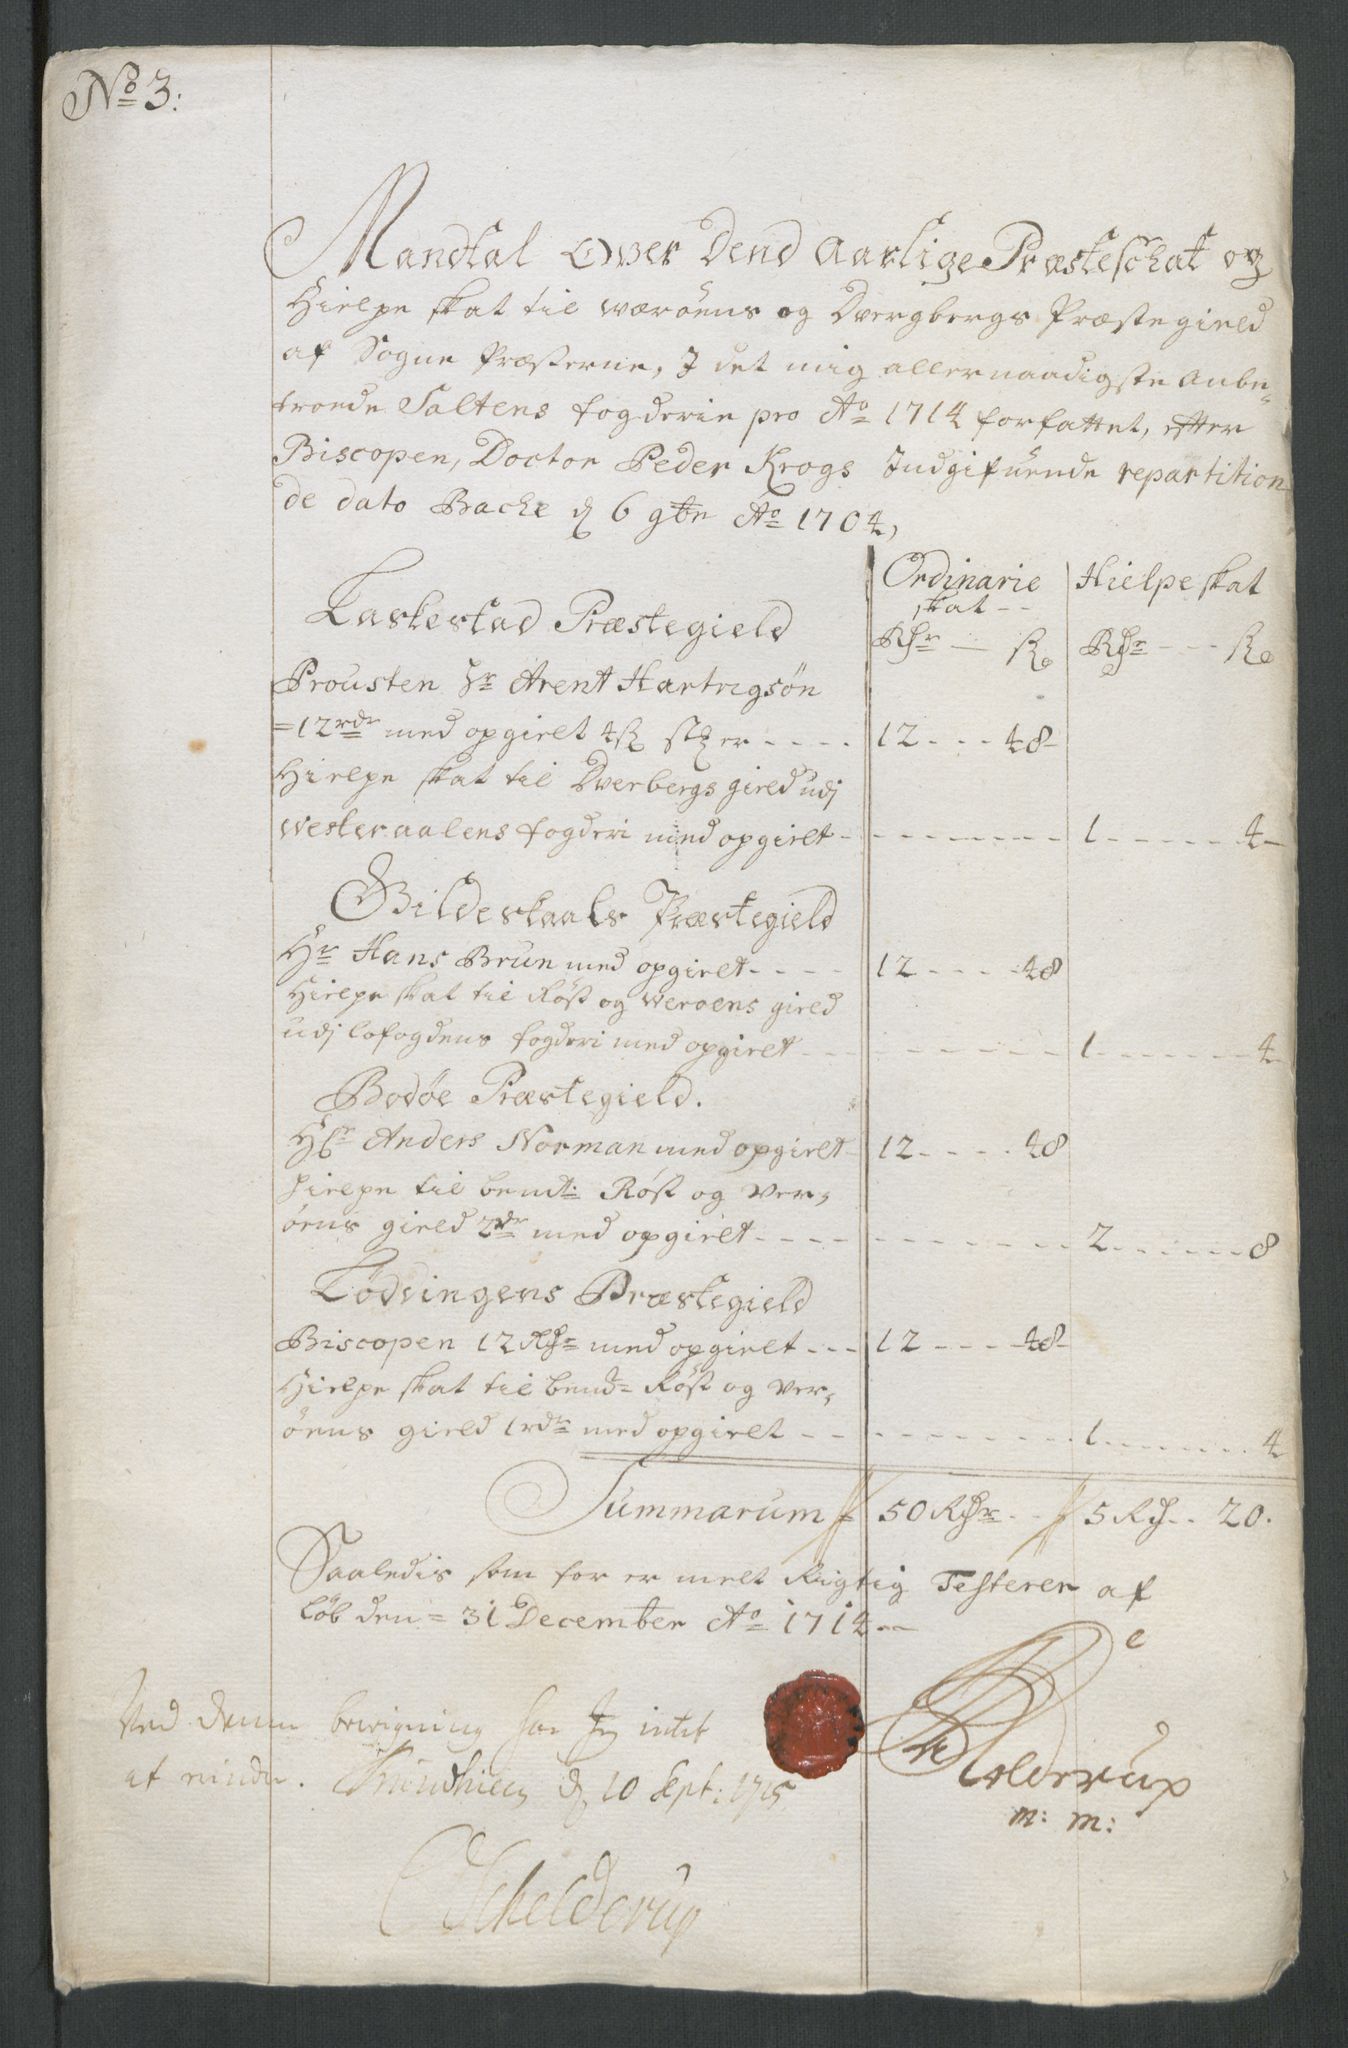 No 3:
Mandtal Over Dend Aarlige Præsteschat og
Hielpe skat til Wærøens og Dvergbergs Præstegield
af Sogne Præsterne, J det mig allernaadigste Anbe-
troede Saltens fogderie pro Ao 1714 forfattet, efter
Biscopen, Doctor Peder Krogs Jndgifuende repartition
de dato Bache d 6 9br Ao 1704,
Ordinarie Hielpe skat
skat --
Laskestad Præstegield
Rdr — ß Rdr --- ß
Prousten Hr Arent Hartvigsøn
=12rdr med opgielt 4ß stk er ..... 12 ... 48-
Hielpe skat til Dverbergs gield udj
Westeraalens fogderi med opgielt - 1 ...... 4-
Gildeskaals Præstegield
Hr Hans Brun med opgielt .... 12 .... 48
Hielpe skat til Røst og Werøens gield
udj Lofogdens fogderi med opgielt 1 ...... 4
Bodøe Præstegield.
Hr Anders Norman med opgielt 12 .... 48
Hielpe til bemt: Røst og Ver,,
øens gield 2rdr med opgielt .... 2 ...... 8
Lødingens Præstegield
Biscopen 12 Rdr med opgielt ... 12 .... 48-
Hielpe skat til bemd= Røst og Ver,,
øens gield 1rdr med opgielt 1 ...... 4
Summarum 50 Rdr .. 5 Rd .. 20.
Saaledis som for er melt Rigtig Testerer af
Løb den = 31 December Ao 1714 --
Ved denne beregning har Jeg intet
at erindre. Trundhiem d 10 Sept: 1715
Schelderup
m: m: